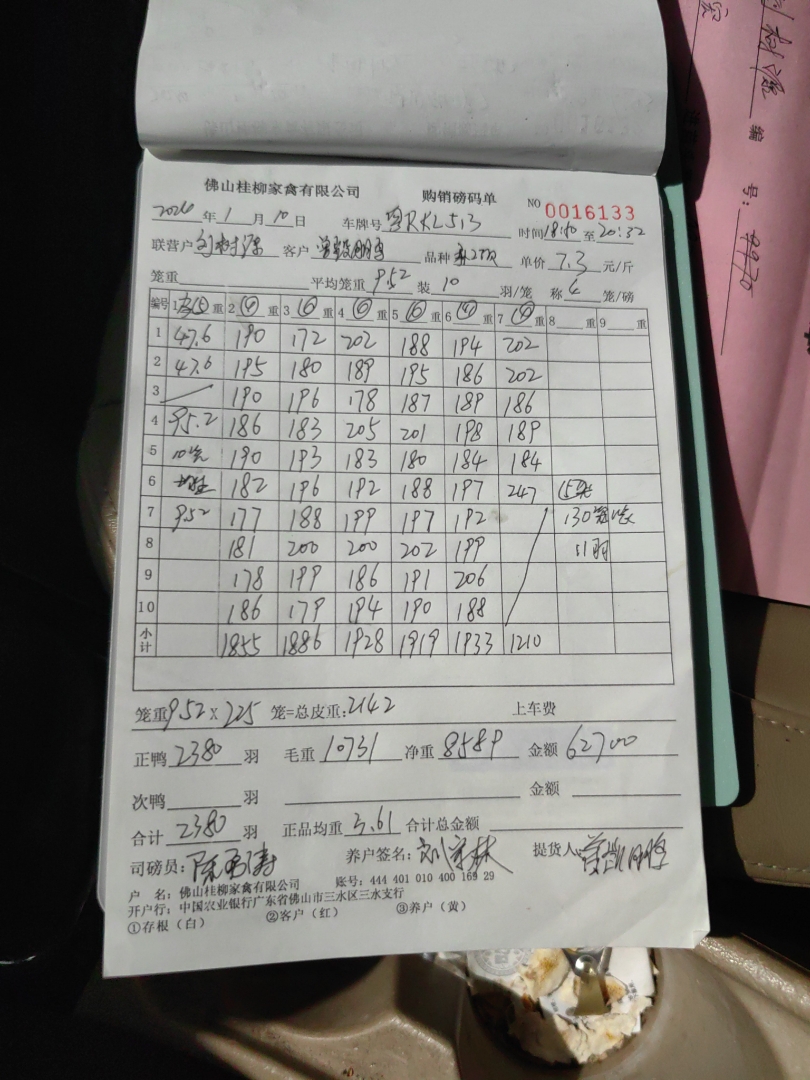 佛山桂柳家禽有限公司 购销磅码单 NO 0016133
2026年1月10日 车牌号 粤RKL513 时间18:40至20:32
联营户 客户 品种 单价 7.3 元/斤
笼重 平均笼重 9.52 装 10 羽/笼 称 4 笼/磅
编号 1 重 2 ④ 重 3 ④ 重 4 ④ 重 5 ④ 重 6 ④ 重 7 ④ 重 8 重 9 重
1 47.6 190 172 202 188 194 202
2 47.6 195 180 189 195 186 202
3 190 196 178 187 189 186
4 95.2 186 183 205 201 198 189
5 10笼 190 193 183 180 184 184
6 182 196 192 188 197 247 15
7 9.52 177 188 199 197 192 130
8 181 200 200 202 199 11羽
9 178 199 186 191 206
10 186 179 194 190 188
小计 1855 1886 1928 1919 1933 1210
笼重9.52 X 225 笼=总皮重:2142 上车费
正鸭 2380 羽 毛重 10731 净重 8589 金额 62700
次鸭 羽 金额
合计 2380 羽 正品均重 3.61 合计总金额
司磅员: 养户签名: 提货人:
户 名: 佛山桂柳家禽有限公司 账号: 444 401 010 400 169 29
开户行: 中国农业银行广东省佛山市三水区三水支行
①存根(白) ②客户(红) ③养户(黄)
编 号: